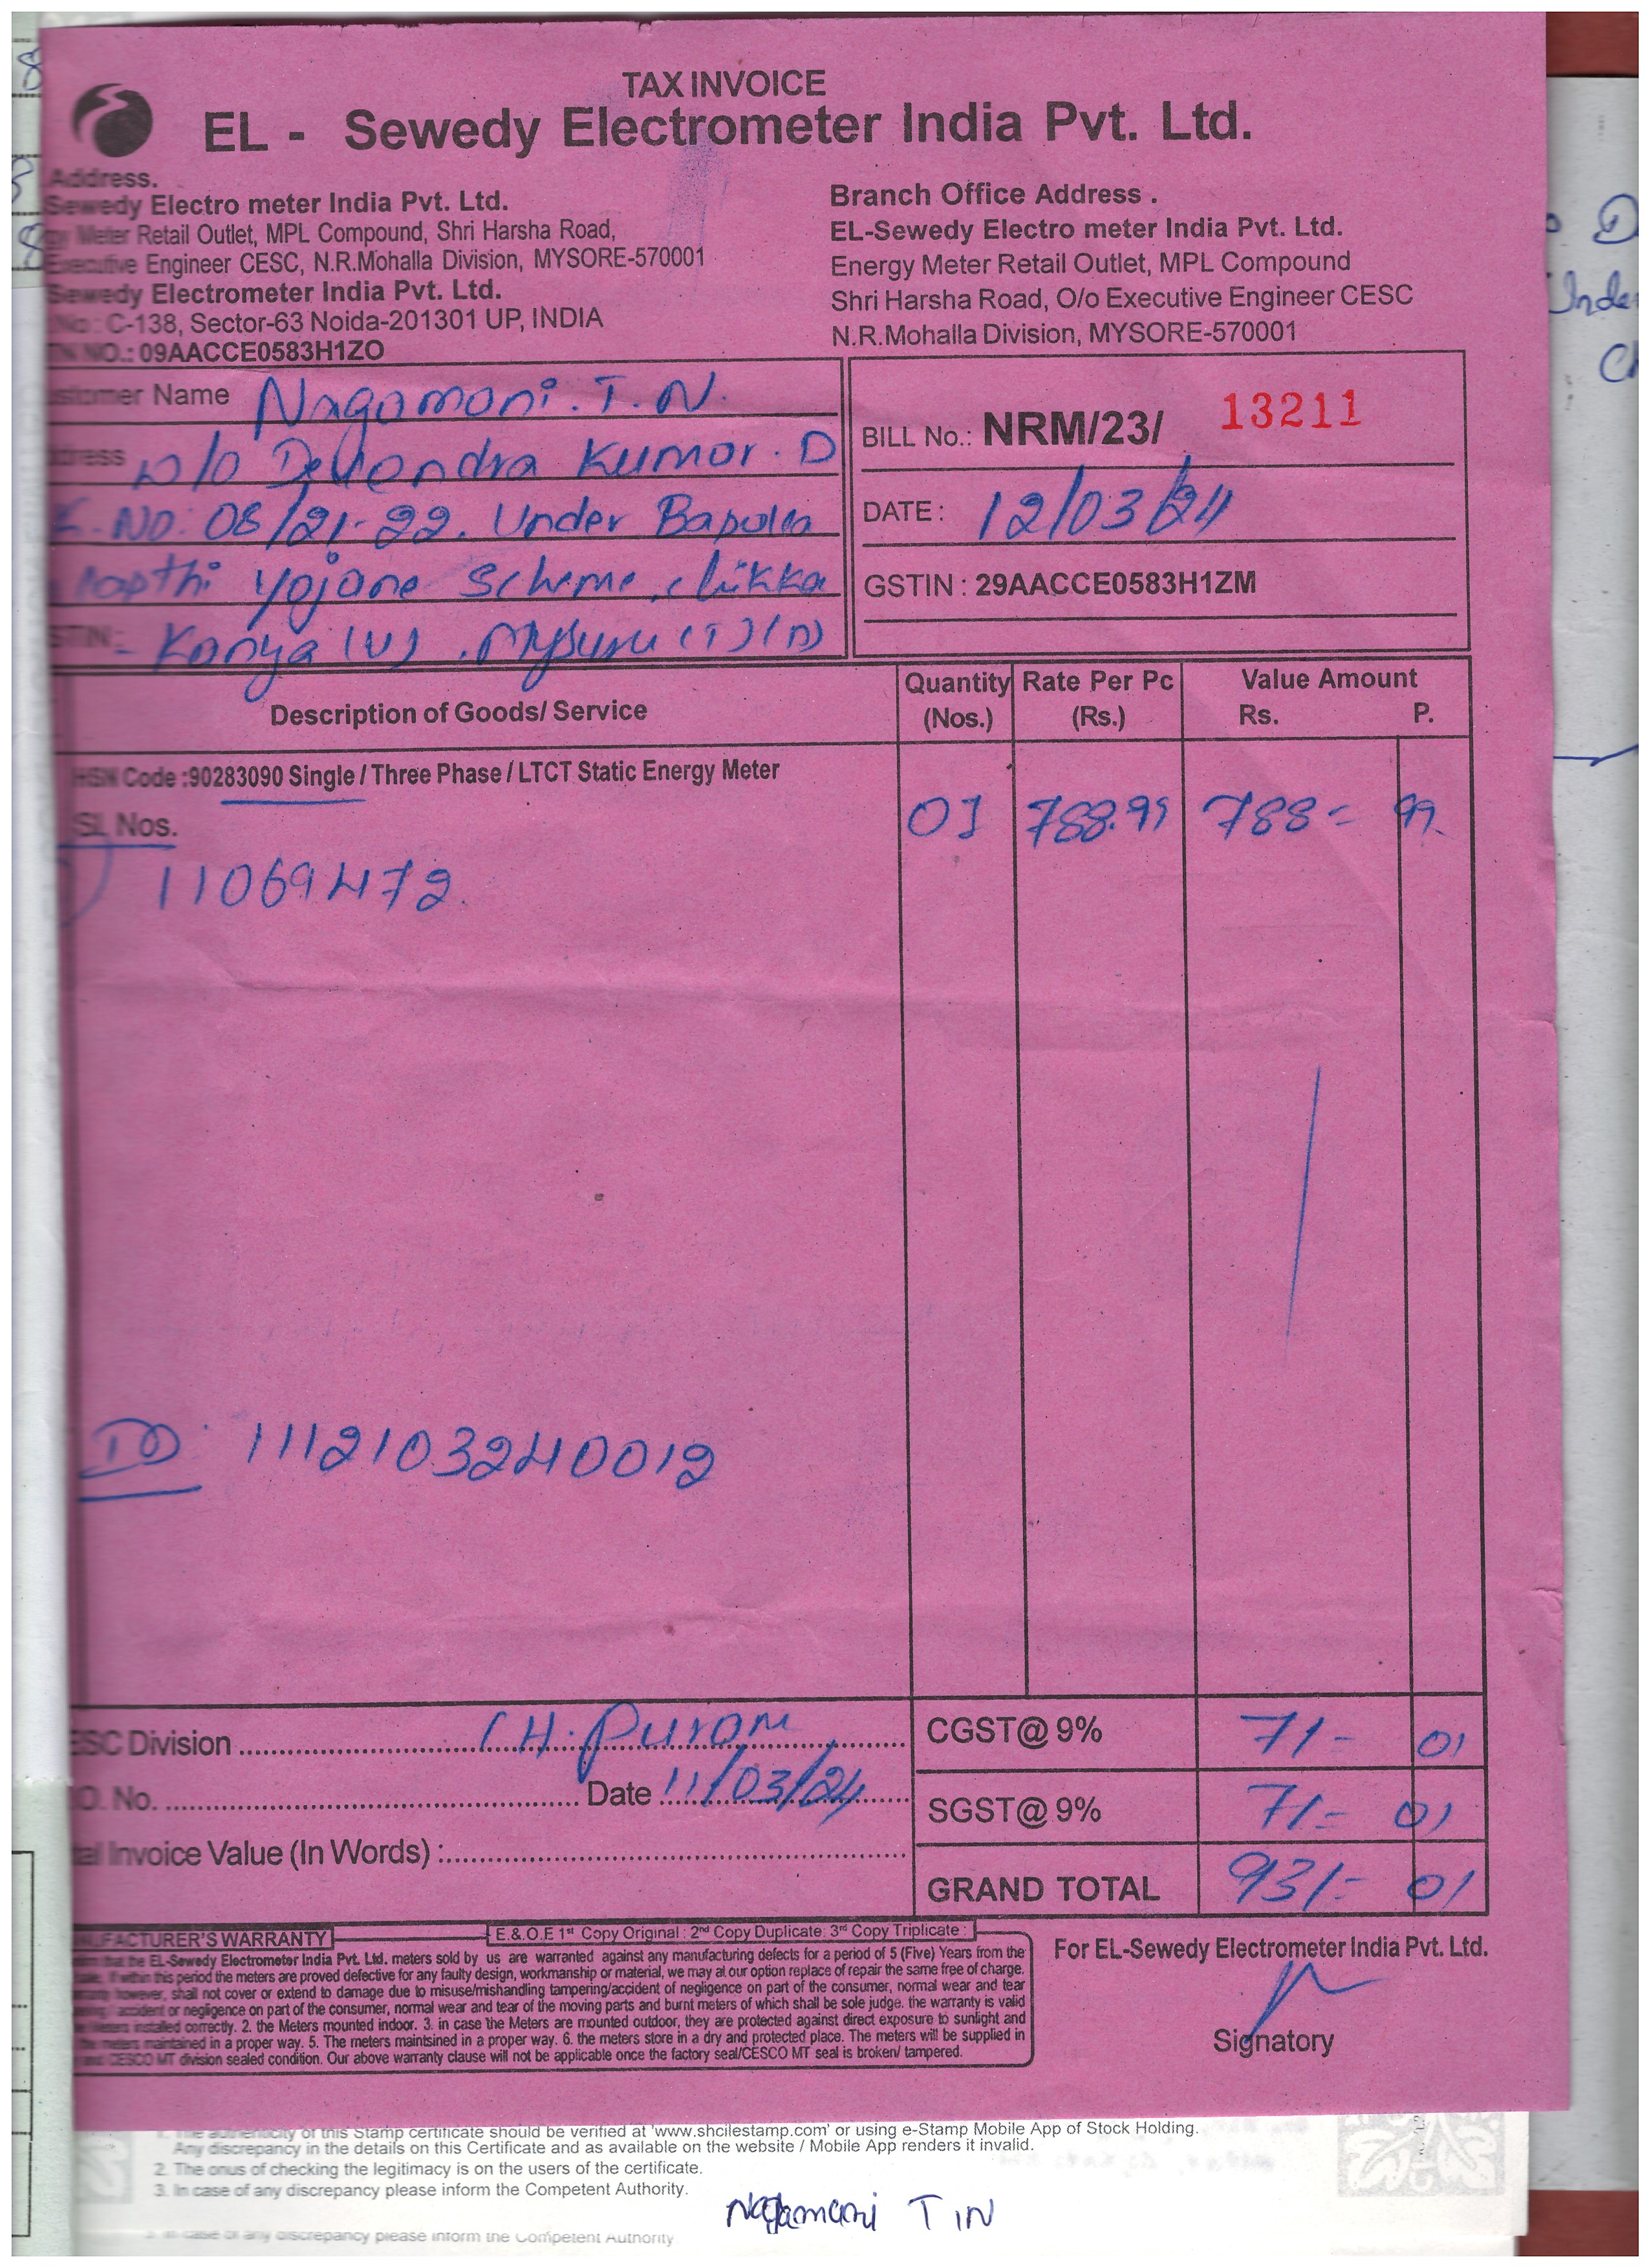 TAX INVOICE
EL - Sewedy Electrometer India Pvt. Ltd.
Address.
Sewedy Electro meter India Pvt. Ltd.
Meter Retail Outlet, MPL Compound, Shri Harsha Road,
Executive Engineer CESC, N.R.Mohalla Division, MYSORE-570001
Sewedy Electrometer India Pvt. Ltd.
No : C-138, Sector-63 Noida-201301 UP, INDIA
NO.: 09AACCE0583H1ZO
Branch Office Address .
EL-Sewedy Electro meter India Pvt. Ltd.
Energy Meter Retail Outlet, MPL Compound
Shri Harsha Road, O/o Executive Engineer CESC
N.R.Mohalla Division, MYSORE-570001
Customer Name Nagamani. T. N.
W/o Devendra Kumar. D
NO: 08/21-22. Under Bapuji
Yojane Scheme, Chikka
Kanya (V) . Mysuru (T) (D)
BILL No.: NRM/23/ 13211
DATE : 12/03/24
GSTIN : 29AACCE0583H1ZM
Description of Goods/ Service
Quantity (Nos.)
Rate Per Pc (Rs.)
Value Amount
Rs. P.
HSN Code :90283090 Single / Three Phase / LTCT Static Energy Meter
SL Nos.
01 788.99 788= 99.
11069472.
ID: 1112103240012
Division CH.Puram
O. No. Date 11/03/24
Invoice Value (In Words) :
CGST@ 9% 71- 01
SGST@ 9% 71= 01
GRAND TOTAL 931= 01
MANUFACTURER'S WARRANTY
E.& O.E 1st Copy Original : 2nd Copy Duplicate: 3rd Copy Triplicate :
the EL-Sewedy Electrometer India Pvt. Ltd. meters sold by us are warranted against any manufacturing defects for a period of 5 (Five) Years from the
If within this period the meters are proved defective for any faulty design, workmanship or material, we may at our option replace of repair the same free of charge.
however, shall not cover or extend to damage due to misuse/mishandling tampering/accident of negligence on part of the consumer, normal wear and tear
accident or negligence on part of the consumer, normal wear and tear of the moving parts and burnt meters of which shall be sole judge. the warranty is valid
Meters installed correctly. 2. the Meters mounted indoor. 3. in case the Meters are mounted outdoor, they are protected against direct exposure to sunlight and
the meters maintained in a proper way. 5. The meters maintsined in a proper way. 6. the meters store in a dry and protected place. The meters will be supplied in
and CESCO MT division sealed condition. Our above warranty clause will not be applicable once the factory seal/CESCO MT seal is broken/ tampered.
For EL-Sewedy Electrometer India Pvt. Ltd.
Signatory
1. The authenticity of this Stamp certificate should be verified at 'www.shcilestamp.com' or using e-Stamp Mobile App of Stock Holding.
Any discrepancy in the details on this Certificate and as available on the website / Mobile App renders it invalid.
2. The onus of checking the legitimacy is on the users of the certificate.
3. In case of any discrepancy please inform the Competent Authority.
Nagamani T N
3. In case of any discrepancy please inform the Competent Authority